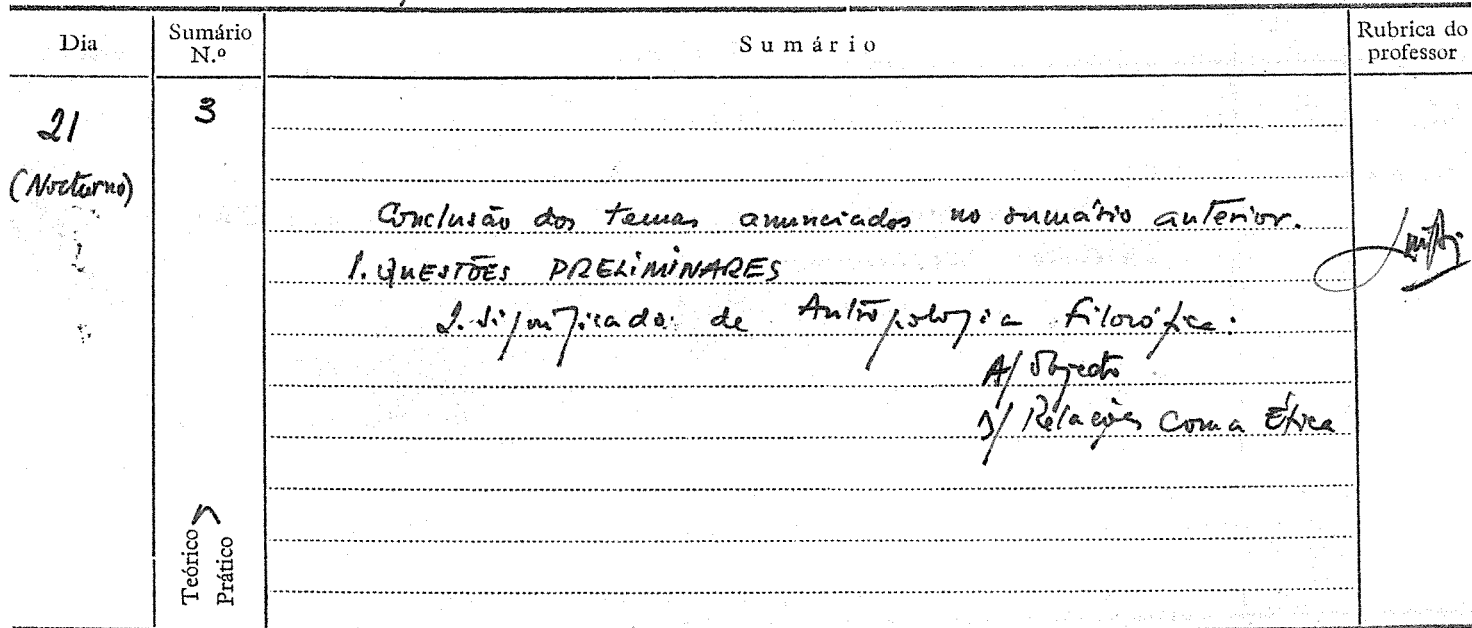 Dia
Sumário N.º
Sumário
Rubrica do professor
21
(Nocturno)
3
Conclusão dos temas anunciados no sumário anterior.
1. QUESTÕES PRELIMINARES
2. Significado de Antropologia Filosófica:
A/ Objecto
B/ Relações com a Ética
Teórico
Prático